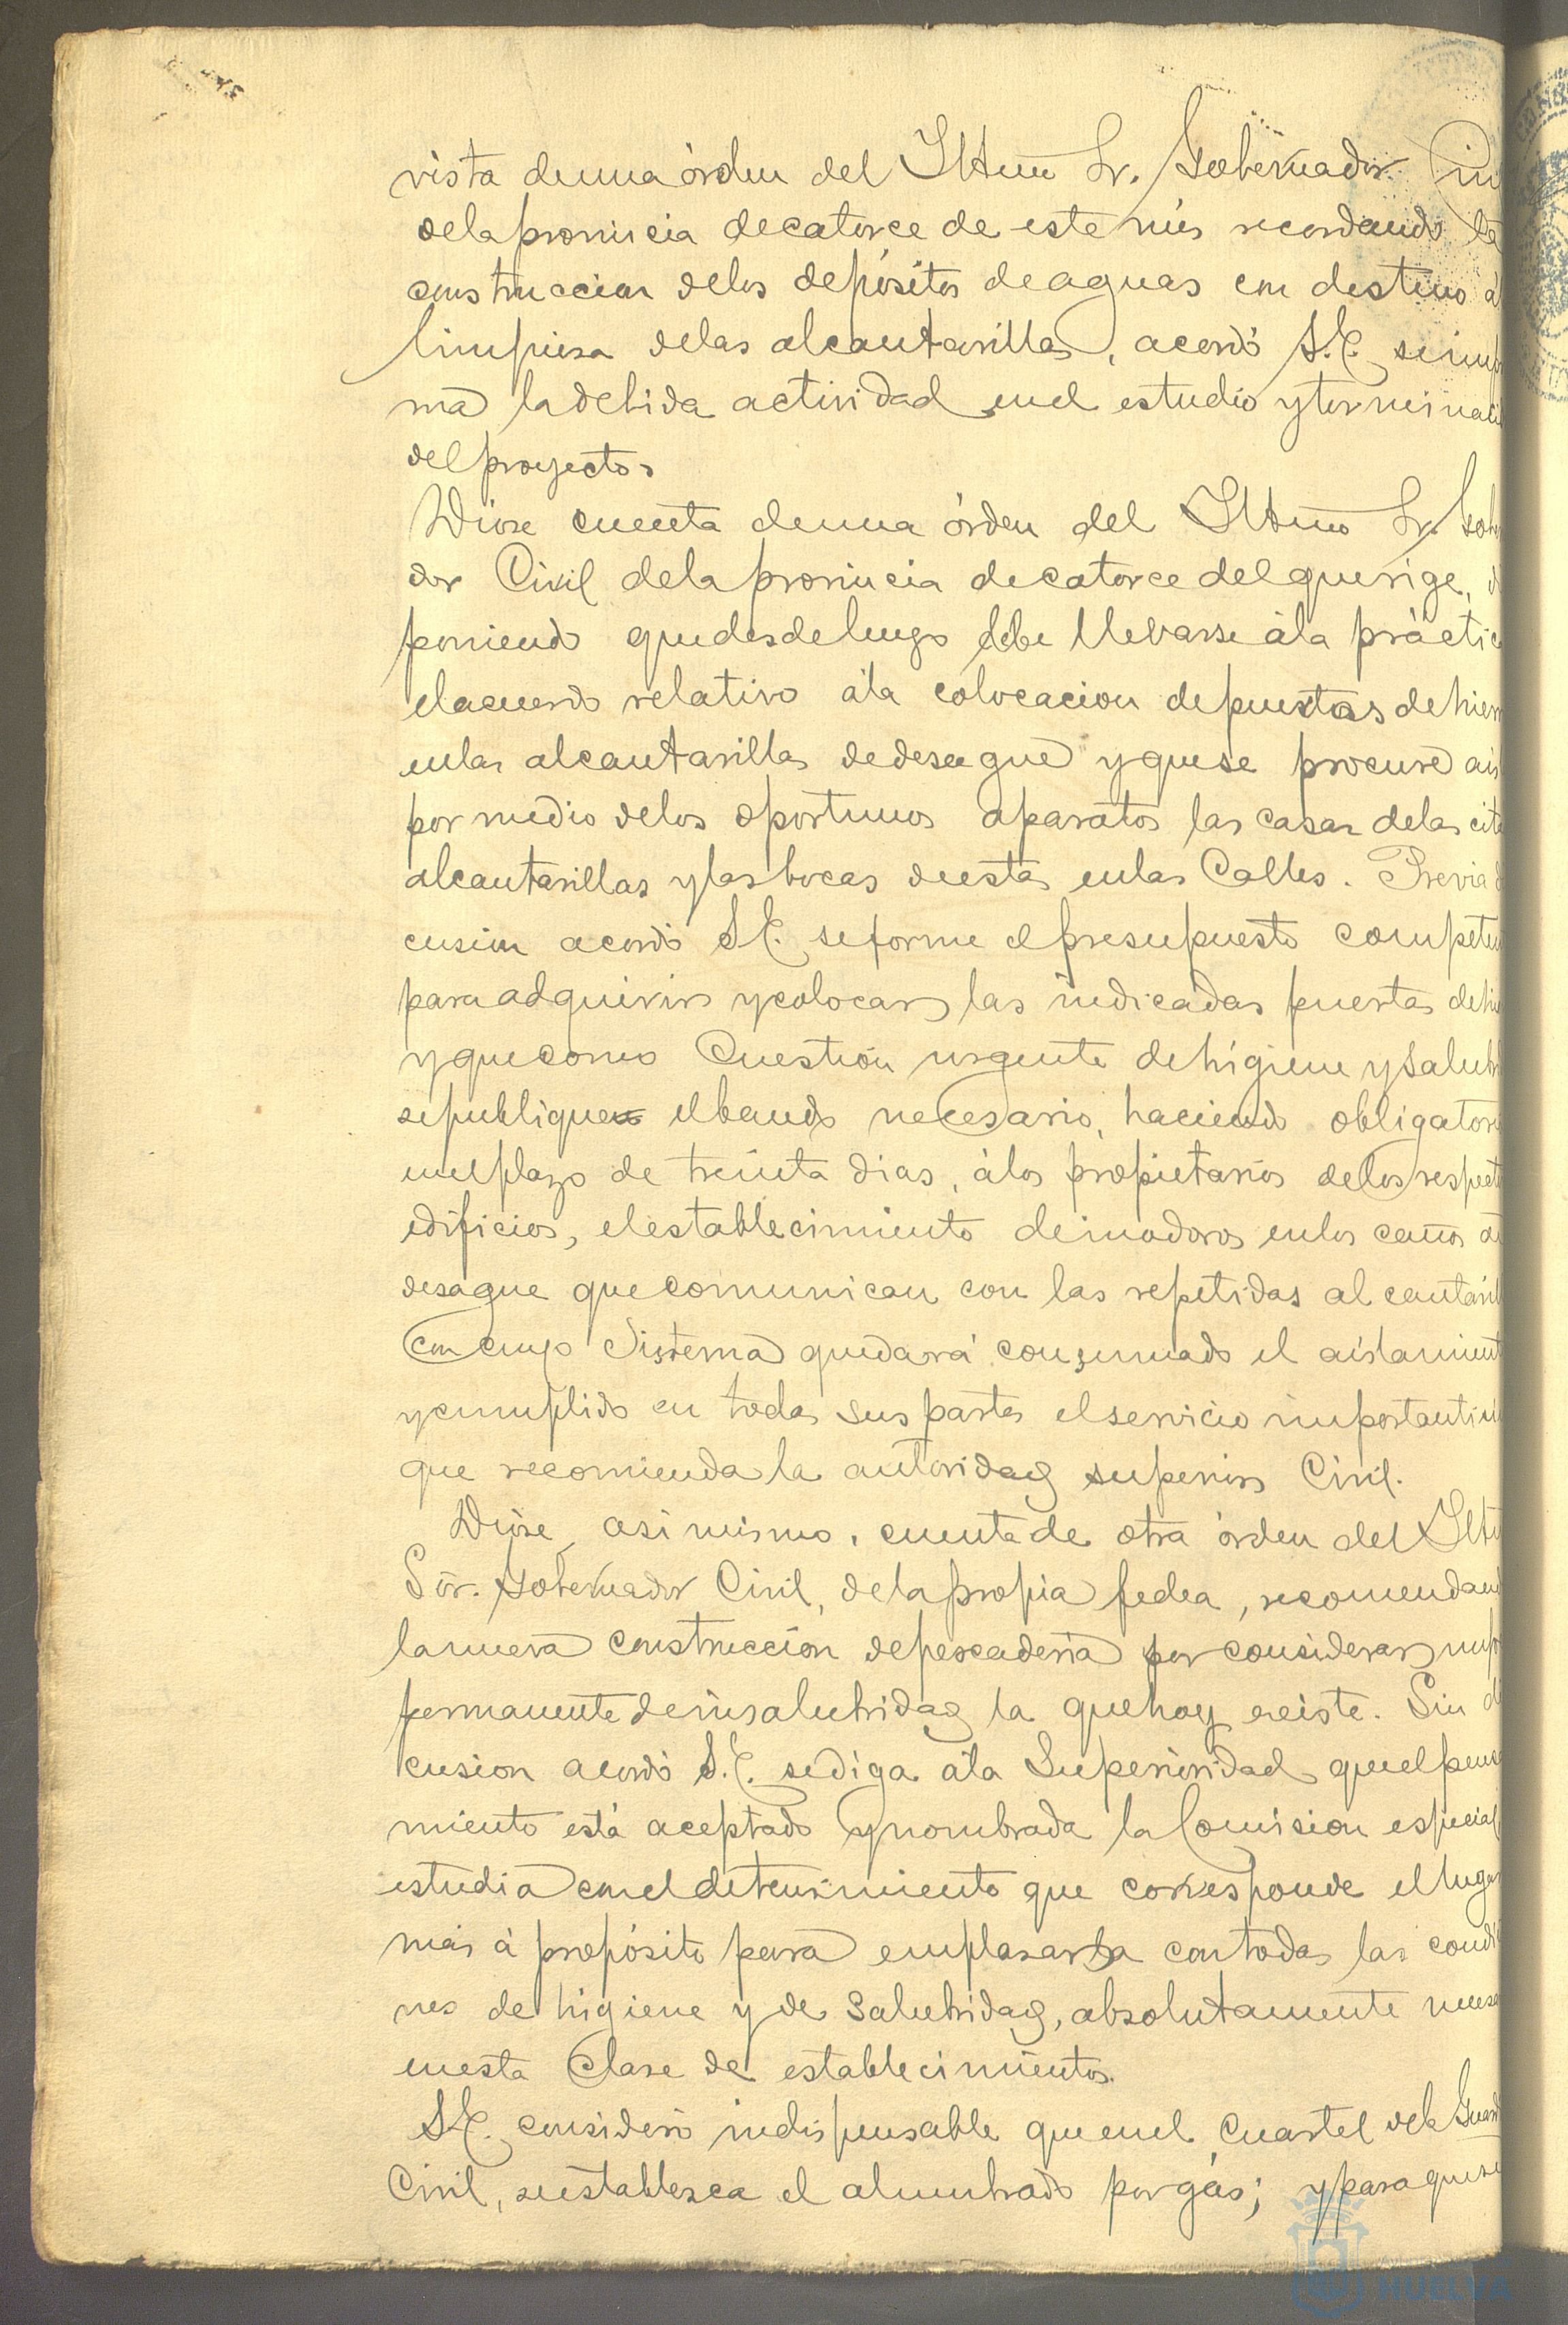 vista de una órden del Iltmo Sr. Gobernador Civi
de la provincia de catorce de este mes recordando la
construccion de los depósitos de aguas con destino á
limpiesa de las alcantarillas, acordó S.E. se impri
ma la debida actividad en el estudio y terminació
del proyecto.
Dióse cuenta de una órden del Iltmo Sr. Gober
dor Civil de la provincia de catorce del que rige, di
poniendo que desde luego debe llevarse á la práctica
el acuerdo relativo á la colocacion de puertas de hierr
en las alcantarillas de desagüe y que se procure ais
por medio de los oportunos aparatos las casas de las cita
alcantarillas y las bocas de estas en las Calles. Previa di
cusion acordó S.E. se forme el presupuesto competen
para adquirir y colocar las indicadas puertas de hie
y que como Cuestión urgente de higiene y salubri
se publique el bando necesario, haciendo obligatorio
en el plazo de treinta dias, á los propietarios de los respecti
edificios, el establecimiento de inodoros en los caños de
desague que comunican con las repetidas alcantaril
con cuyo Sistema quedará consumado el aislamient
y cumplido en todas sus partes el servicio importantísi
que recomienda la autoridad superior Civil.
Dióse, asi mismo, cuenta de otra órden del Iltm
Sor. Gobernador Civil, de la propia fecha, recomendand
la nueva construcción de pescaderia por considerar
permanente de insalubridad la que hoy existe. Sin di
cusion acordó S.E. se diga á la Superioridad que el pensa
miento está aceptado y nombrada la Comision especial
estudia con el detenimiento que corresponde el lugar
más á propósito para emplasarla con todas las condici
nes de higiene y de salubridad, absolutamente necesa
en esta Clase de establecimientos.
S.E. consideró indispensable que en el Cuartel de la Guard
Civil, se establesca el alumbrado por gás; y para que se
HUELVA